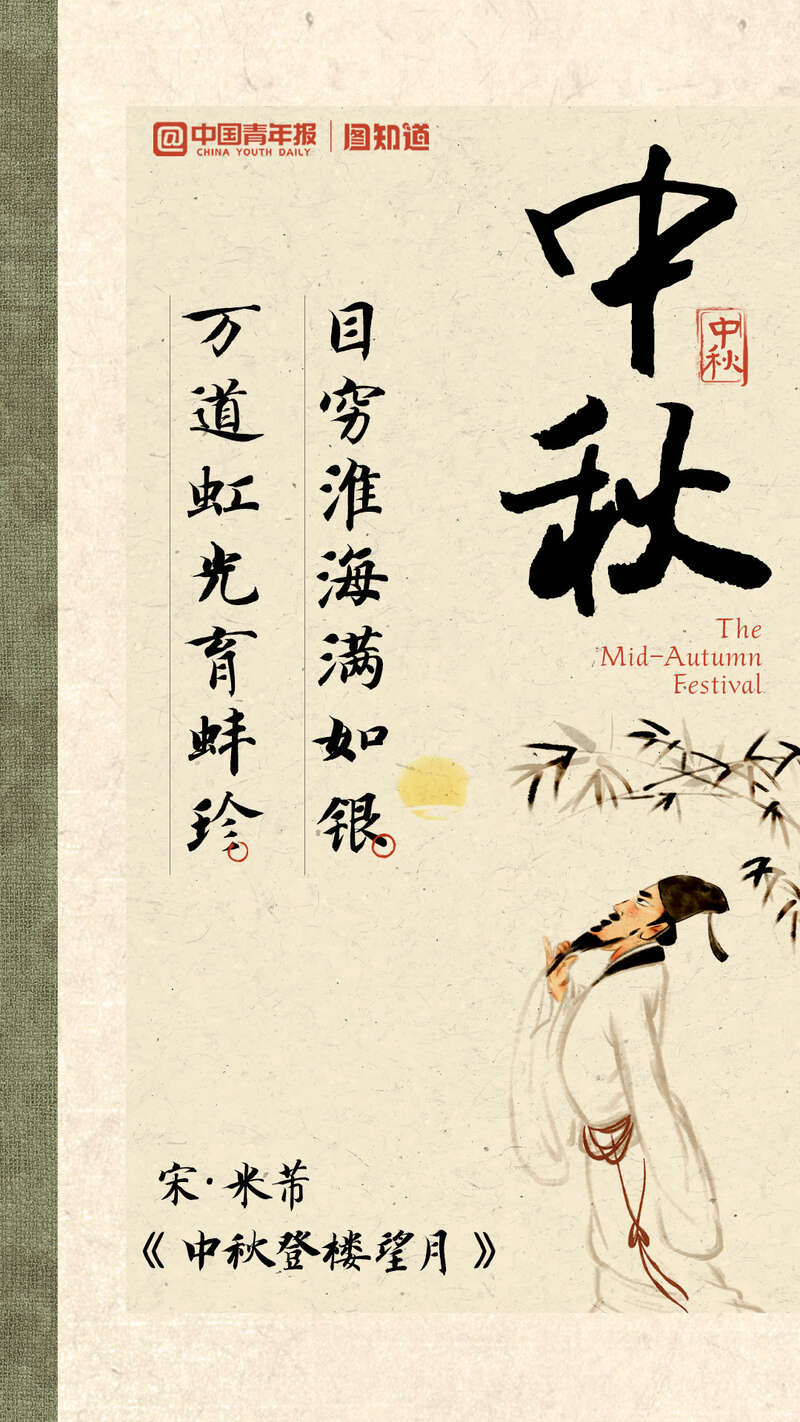 @中国青年报 | 图知道
CHINA YOUTH DAILY
中秋
中秋
The
Mid-Autumn
Festival
目穷淮海满如银
万道虹光育蚌珍
宋·米芾
《中秋登楼望月》